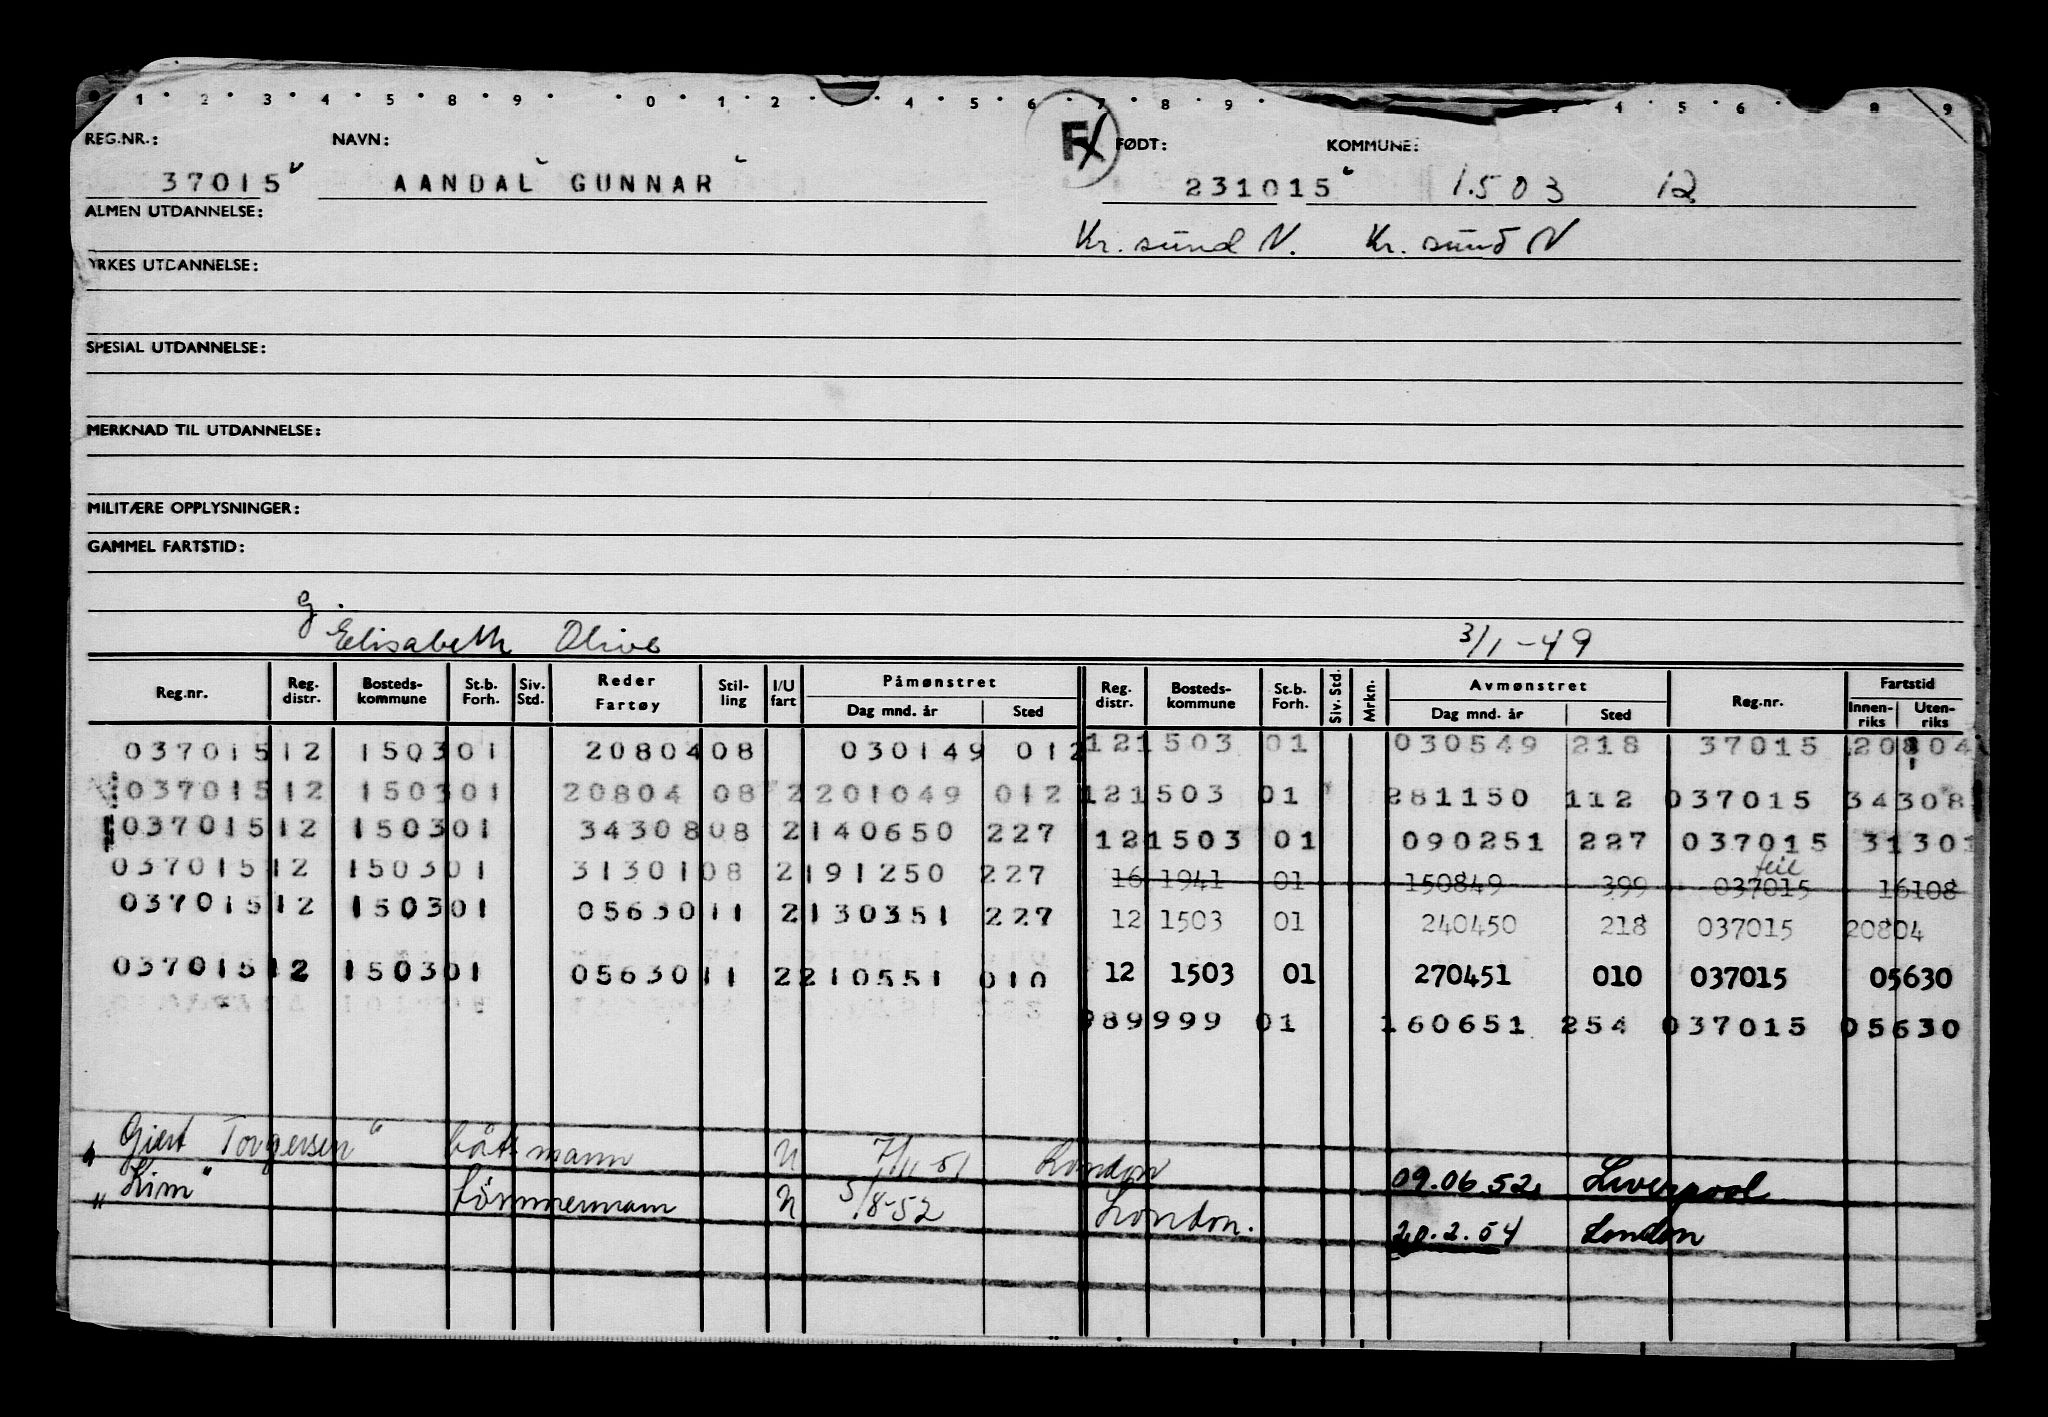 1 · 2 · 3 · 4 · 5 · 8 · 9 · · 0 · 1 · 2 · 4 · 5 · 6 · 7 · 8 · 9 · 4 · 5 · 6 · 8 9
REG.NR.: NAVN: F FØDT: KOMMUNE:
37015 AANDAL GUNNAR 231015 1503 12
ALMEN UTDANNELSE:
Kr. sund N. Kr. sund N
YRKES UTDANNELSE:
SPESIAL UTDANNELSE:
MERKNAD TIL UTDANNELSE:
MILITÆRE OPPLYSNINGER:
GAMMEL FARTSTID:
g.
Elisabeth Olive 3/1-49
Reg.nr. Reg. distr. Bosteds- kommune St.b. Forh. Siv. Std. Reder Fartøy Stil- ling I/U fart Påmønstret Dag mnd. år Sted Reg. distr. Bosteds- kommune St.b. Forh. Siv. Std. Mrkn. Avmønstret Dag mnd. år Sted Reg.nr. Fartstid Innen- riks Uten- riks
037015 12 1503 01 20804 08 030149 012 12 1503 01 030549 218 37015 20804
037015 12 1503 01 20804 08 2 201049 012 12 1503 01 281150 112 037015 34308
037015 12 1503 01 34308 08 2 140650 227 12 1503 01 090251 227 037015 31301
feil
037015 12 1503 01 31301 08 2 191250 227 16 1941 01 150849 399 037015 16108
037015 12 1503 01 05630 11 2 130351 227 12 1503 01 240450 218 037015 20804
037015 12 1503 01 05630 11 2 210551 010 12 1503 01 270451 010 037015 05630
98 9999 01 160651 254 037015 05630
" Giert Torgersen " båtsmann U 7/11-51 London 09.06.52. Liverpool
" Kim " tömmermann U 5/8-52 London. 20.2.54 London